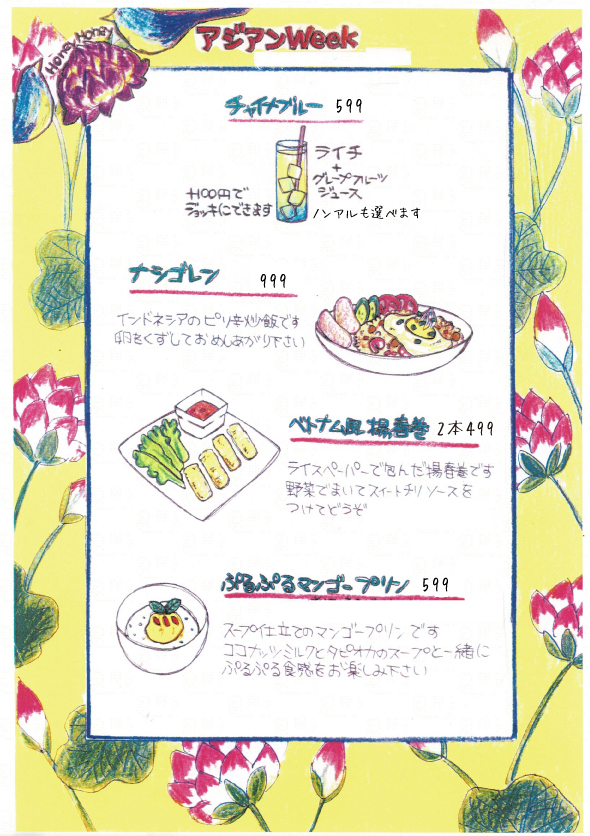 Honey Honey
アジアンWeek
チャイナブルー 599
ライチ
+
グレープフルーツ
ジュース
+100円で
ジョッキにできます
ノンアルも選べます
ナシゴレン 999
インドネシアのピリ辛炒飯です
卵をくずしておめしあがり下さい
ベトナム風揚春巻 2本499
ライスペーパーで包んだ揚春巻です
野菜でまいてスイートチリソースを
つけてどうぞ
ぷるぷるマンゴープリン 599
スープ仕立てのマンゴープリンです
ココナッツミルクとタピオカのスープと一緒に
ぷるぷる食感をお楽しみ下さい